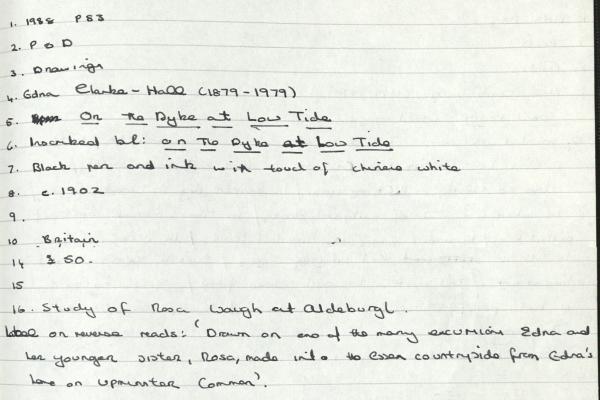 1. 1988 P53
2. P & D
3. Drawings
4. Edna Clarke-Hall (1879-1979)
5. On The Dyke at Low Tide
6. Inscribed bl: on The Dyke at Low Tide
7. Black pen and ink with touch of chinese white
8. c. 1902
9.
10 Britain
14 £ 50.
15
16. Study of Rosa Waugh at Aldeburgh.
label on reverse reads: 'Drawn on one of the many excursions Edna and
her younger sister, Rosa, made into the Essex countryside from Edna's
home on Upminster Common'.